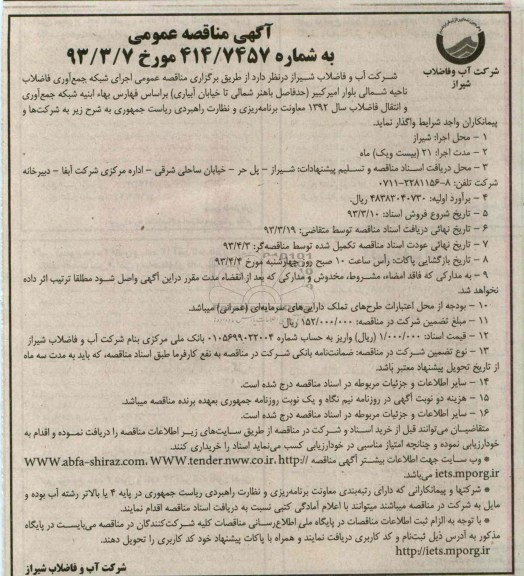 آگهی مناقصه عمومی
به شماره ۴۱۴/۷۴۵۷ مورخ ۹۳/۳/۷
شرکت آب و فاضلاب
شیراز
شرکت آب و فاضلاب شیراز درنظر دارد از طریق برگزاری مناقصه عمومی اجرای شبکه جمع‌آوری فاضلاب
ناحیه شمالی بلوار امیرکبیر (حدفاصل باهنر شمالی تا خیابان آبیاری) براساس فهارس بهاء ابنیه شبکه جمع‌آوری
و انتقال فاضلاب سال ۱۳۹۲ معاونت برنامه‌ریزی و نظارت راهبردی ریاست جمهوری به شرح زیر به شرکت‌ها و
پیمانکاران واجد شرایط واگذار نماید.
۱ – محل اجرا: شیراز
۲ – مدت اجرا: ۲۱ (بیست ویک) ماه
۳ – محل دریافت اسناد مناقصه و تسلیم پیشنهادات: شیراز – پل حر – خیابان ساحلی شرقی – اداره مرکزی شرکت آبفا – دبیرخانه
شرکت تلفن: ۸-۲۲۸۱۱۵۶-۰۷۱۱
۴ – برآورد اولیه: ۴۸۳۸۳۰۴۰۷۳۰ ریال.
۵ – تاریخ شروع فروش اسناد: ۹۳/۳/۱۰
۶ – تاریخ نهائی دریافت اسناد مناقصه توسط متقاضی: ۹۳/۳/۱۹
۷ – تاریخ نهائی عودت اسناد مناقصه تکمیل شده توسط مناقصه‌گر: ۹۳/۴/۳
۸ – تاریخ بازگشایی پاکات: رأس ساعت ۱۰ صبح روز چهارشنبه مورخ ۹۳/۴/۴
۹ – به مدارکی که فاقد امضاء، مشروط، مخدوش و مدارکی که بعد از انقضاء مدت مقرر دراین آگهی واصل شود مطلقا ترتیب اثر داده
نخواهد شد.
۱۰ – بودجه از محل اعتبارات طرح‌های تملک دارایی‌های سرمایه‌ای (عمرانی) میباشد.
۱۱ – مبلغ تضمین شرکت در مناقصه: ۱۵۲/۰۰۰/۰۰۰ ریال.
۱۲ – قیمت اسناد: ۱/۰۰۰/۰۰۰ (ریال) واریز به حساب شماره ۰۱۰۵۶۹۹۰۲۲۰۰۴ بانک ملی مرکزی بنام شرکت آب و فاضلاب شیراز
۱۳ – نوع تضمین شرکت در مناقصه: ضمانت‌نامه بانکی شرکت در مناقصه به نفع کارفرما طبق اسناد مناقصه، که باید به مدت سه ماه
از تاریخ تحویل پیشنهاد معتبر باشد.
۱۴ – سایر اطلاعات و جزئیات مربوطه در اسناد مناقصه درج شده است.
۱۵ – هزینه دو نوبت آگهی در روزنامه نیم نگاه و یک نوبت روزنامه جمهوری بعهده برنده مناقصه میباشد.
۱۶ – سایر اطلاعات و جزئیات مربوطه در اسناد مناقصه درج شده است.
متقاضیان می‌توانند قبل از خرید اسناد و شرکت در مناقصه از طریق سایت‌های زیر اطلاعات مناقصه را دریافت نموده و اقدام به
خودارزیابی نموده و چنانچه امتیاز مناسبی در خودارزیابی کسب می‌نماید اسناد را خریداری کنند.
● وب سایت جهت اطلاعات بیشتر آگهی مناقصه WWW.abfa-shiraz.com، WWW.tender.nww.co.ir، http://
iets.mporg.ir می‌باشد.
● شرکتها و پیمانکارانی که دارای رتبه‌بندی معاونت برنامه‌ریزی و نظارت راهبردی ریاست جمهوری در پایه ۴ یا بالاتر رشته آب بوده و
مایل به شرکت در مناقصه میباشند میتوانند با اعلام آمادگی کتبی نسبت به دریافت اسناد مناقصه اقدام نمایند.
● با توجه به الزام ثبت اطلاعات مناقصات در پایگاه ملی اطلاع‌رسانی مناقصات کلیه شرکت‌کنندگان در مناقصه می‌بایست در پایگاه
مذکور به آدرس ذیل ثبت‌نام و کد کاربری دریافت نمایند و همراه با پاکات پیشنهاد خود کد کاربری را تحویل دهند.
http://iets.mporg.ir
شرکت آب و فاضلاب شیراز